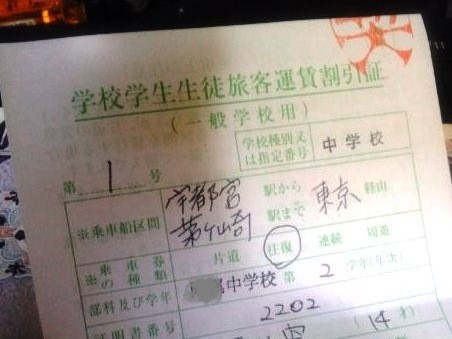 学校学生生徒旅客運賃割引証
(一般学校用)
学校種別又は指定番号 中学校
第 1 号
※乗車船区間 宇都宮 駅から 茅ヶ崎 駅まで 東京 経由
※乗車券の種類 片道 往復 連続 周遊
部科及び学年 中学校 第 2 学年(年次)
証明書番号 2202
(14才)